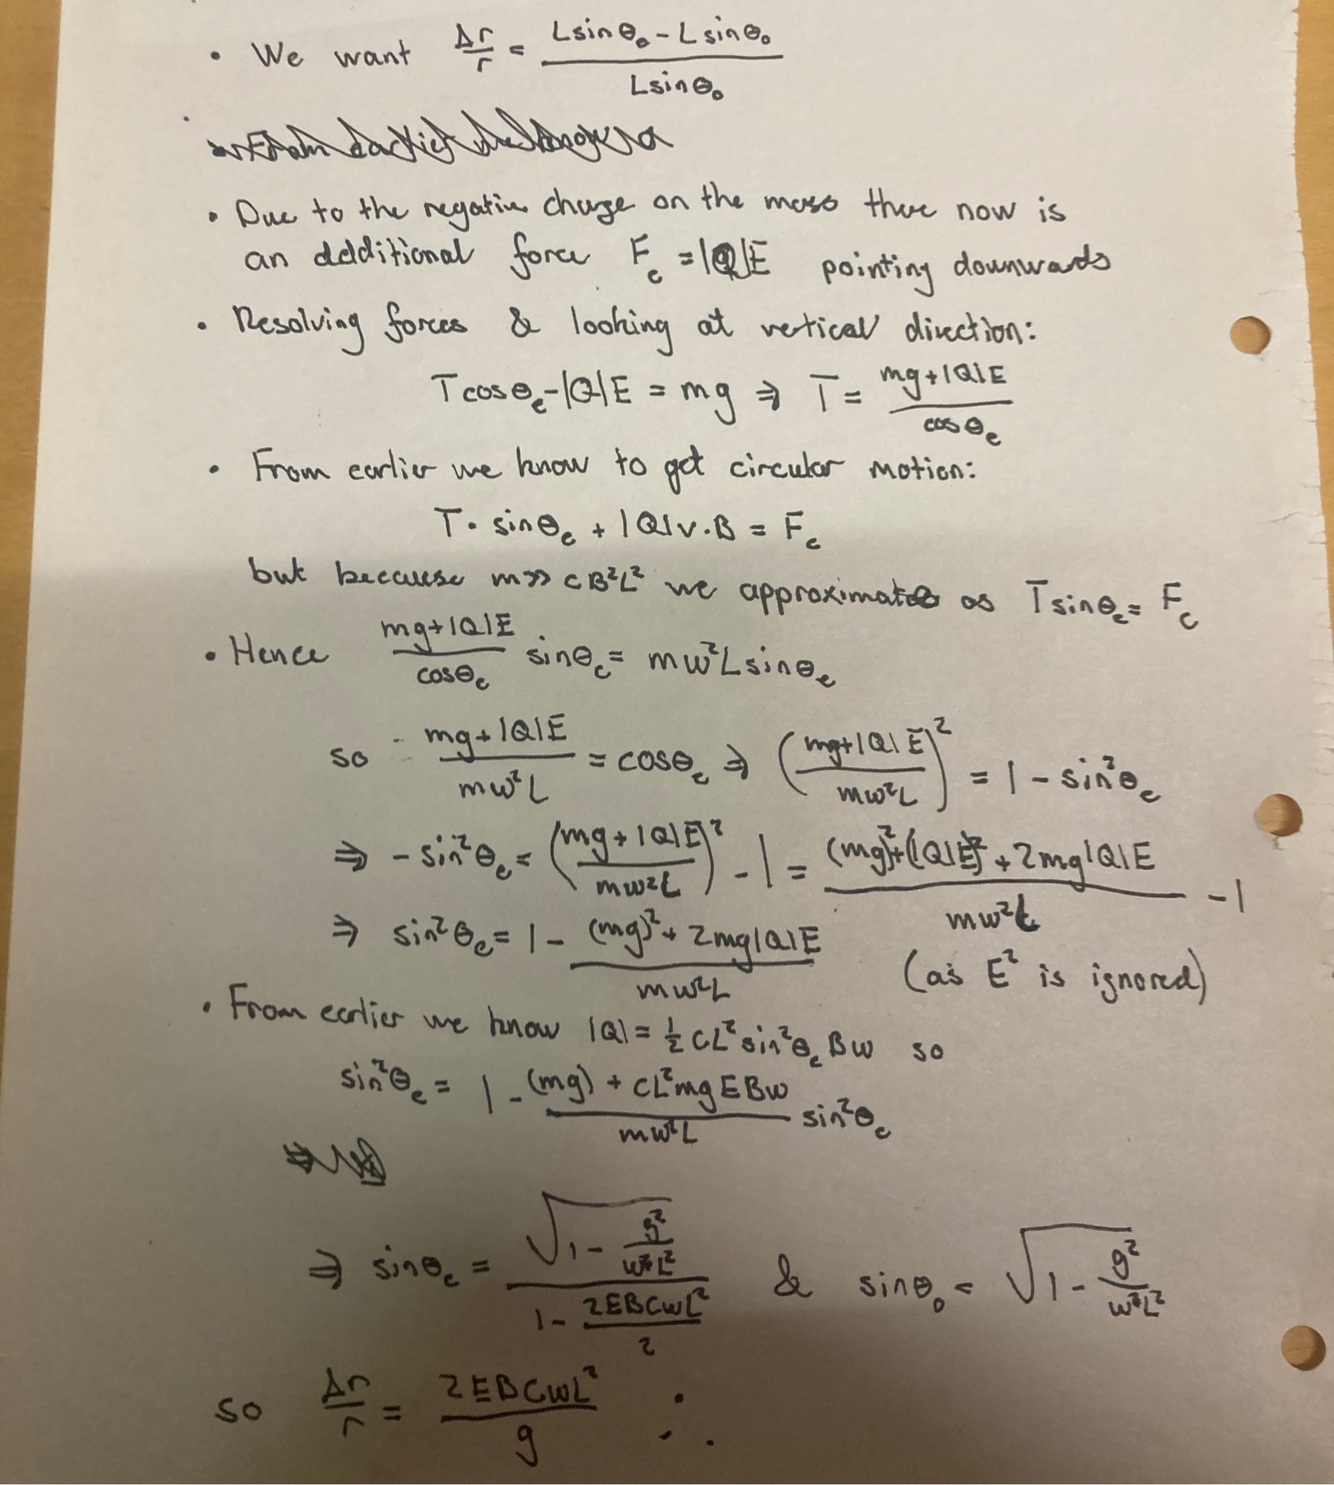 • We want Δr/r = (Lsinθₑ - Lsinθ₀)/(Lsinθ₀)
• Due to the negative charge on the mass there now is
an additional force F_e = |Q|E pointing downwards
• Resolving forces & looking at vertical direction:
Tcosθₑ - |Q|E = mg ⇒ T = (mg+|Q|E)/(cosθₑ)
• From earlier we know to get circular motion:
T · sinθₑ + |Q|v.B = F_c
but because m >> CB²L² we approximate as Tsinθₑ = F_c
• Hence (mg+|Q|E)/(cosθₑ) sinθₑ = mω²Lsinθₑ
so (mg+|Q|E)/(mω²L) = cosθₑ ⇒ ((mg+|Q|E)/(mω²L))² = 1 - sin²θₑ
⇒ -sin²θₑ = ((mg+|Q|E)/(mω²L))² - 1 = ((mg)²+(|Q|E)²+2mg|Q|E)/(mω²L) - 1
⇒ sin²θₑ = 1 - ((mg)²+2mg|Q|E)/(mω²L) (as E² is ignored)
• From earlier we know |Q| = ½CL²sin²θₑBω so
sin²θₑ = 1 - ((mg) + CL²mgEBω)/(mω²L) sin²θₑ
⇒ sinθₑ = √(1 - g²/(ω²L²))/(1 - 2EBCωL²/2) & sinθ₀ = √(1 - g²/(ω²L²))
so Δr/r = 2EBCωL²/g